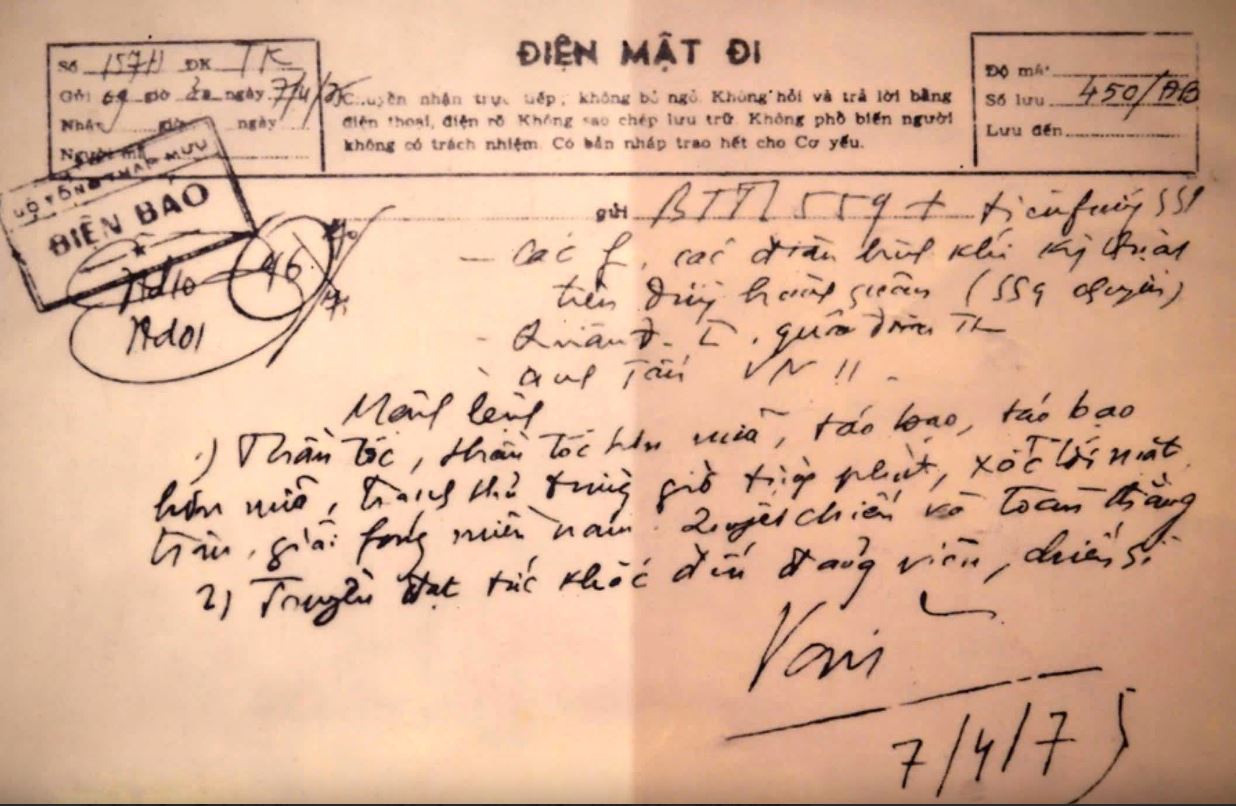 ĐIỆN MẬT ĐI
Số 157H ĐK TK
Gửi 09 giờ ngày 7/4/75
Nhận giờ ngày
Người mã
Chuyển nhận trực tiếp, không bỏ ngỏ. Không hỏi và trả lời bằng
điện thoại, điện rõ Không sao chép lưu trữ. Không phổ biến người
không có trách nhiệm. Có bản nháp trao hết cho Cơ yếu.
Độ mật
Số lưu 450/AB
Lưu đến
BỘ TỔNG THAM MƯU
ĐIỆN BÁO
46
gửi BTTL 559 +
- Các f, các đoàn binh khí kỹ thuật
trên đường hành quân (559 chuyển)
- Quân đ.
- anh Tấn
Mệnh lệnh
1) Thần tốc, thần tốc hơn nữa, táo bạo, táo bạo
hơn nữa, tranh thủ từng giờ từng phút, xốc tới mặt
trận, giải fóng miền nam. Quyết chiến và toàn thắng
2) Truyền đạt tức khắc đến đảng viên, chiến sĩ
Văn
7/4/75